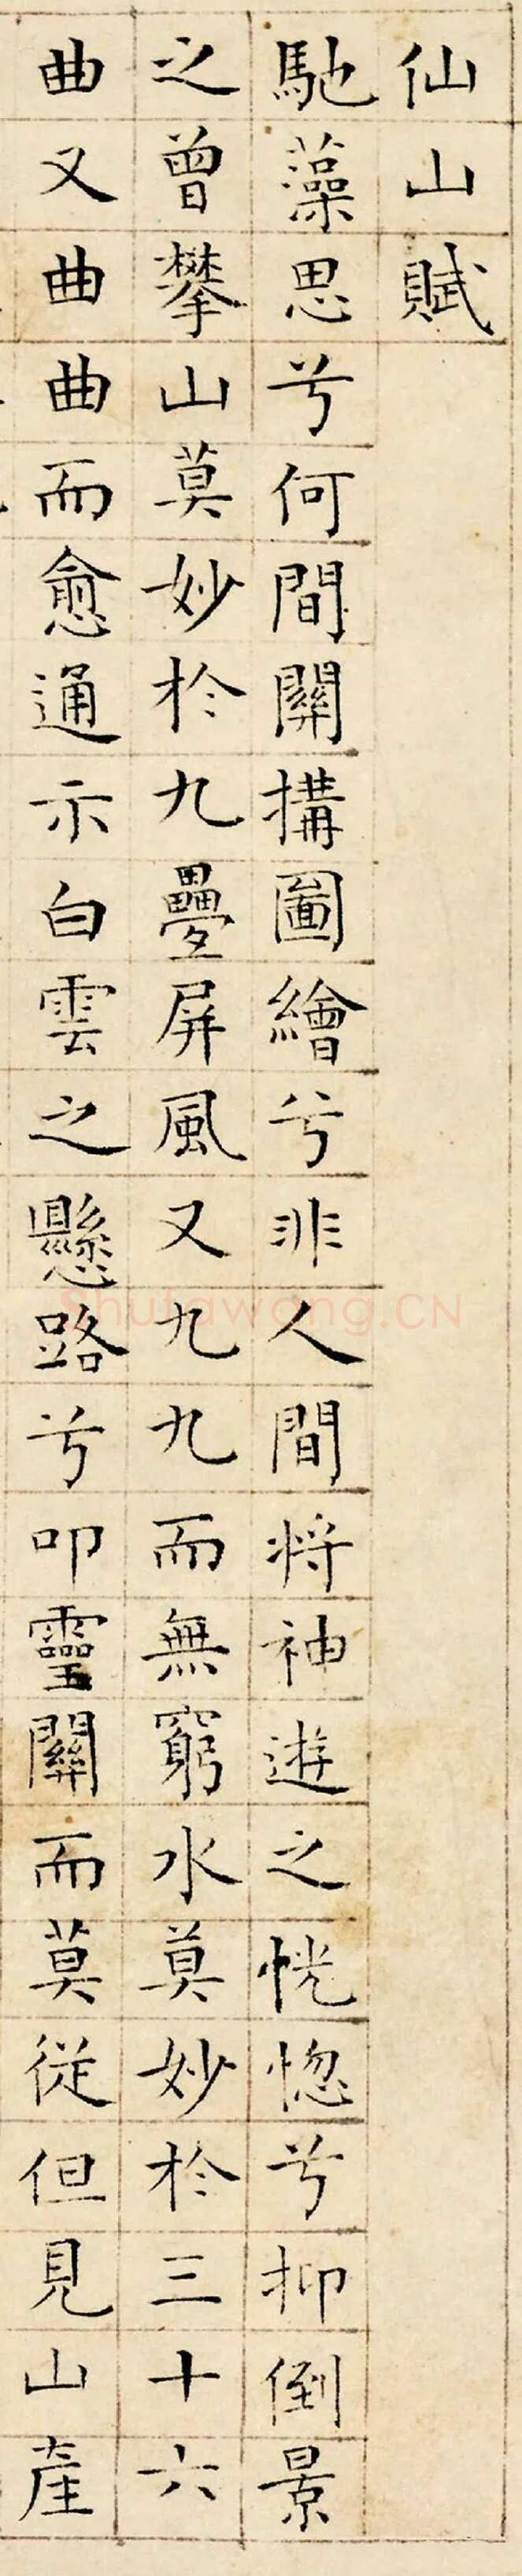 仙山賦
馳藻思兮何間關搆圖繪兮非人間將神遊之恍惚兮抑倒景
之曾攀山莫妙於九疊屏風又九九而無窮水莫妙於三十六
曲又曲曲而愈通示白雲之懸路兮叩靈關而莫從但見山產
Shufawang.CN